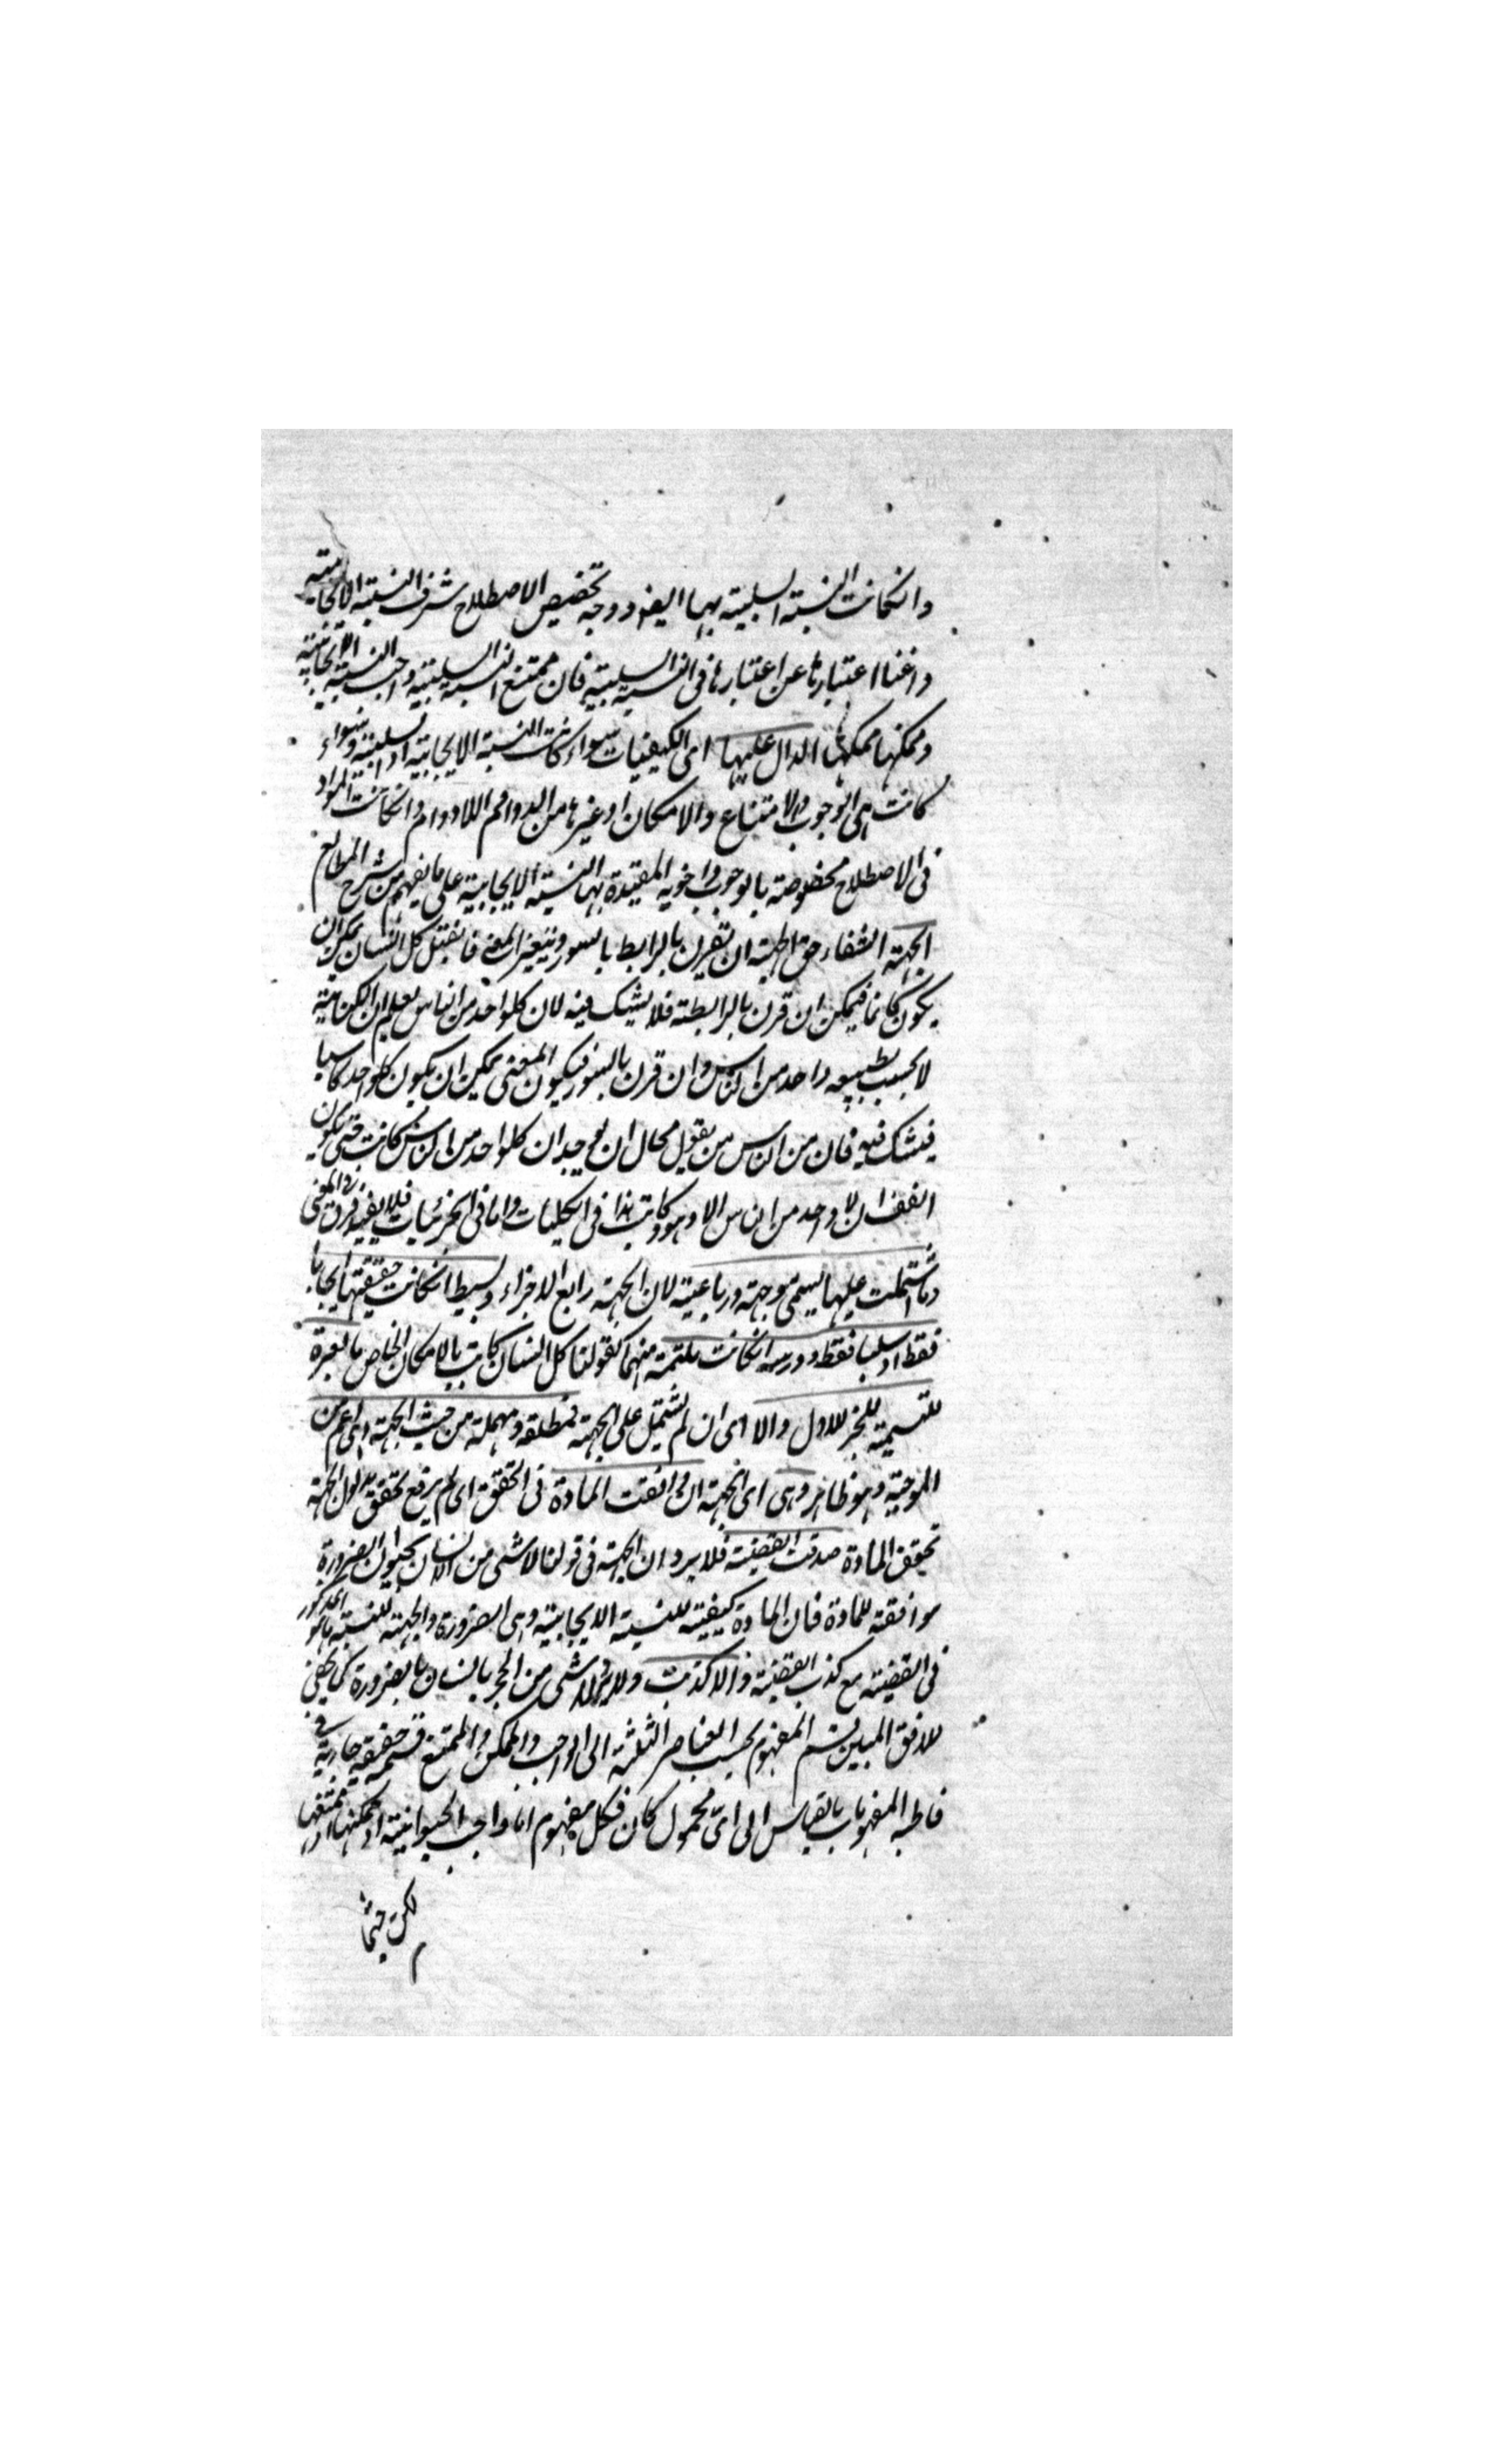 وانكانت النسبة السلبية بها ايضا ووجه تخصيص الاصطلاح شرف النسبة الايجابية
واغنا اعتبارها عن اعتبارها فى النسبة السلبية فان ممتنع النسبة السلبية واجب النسبة الايجابية
وممكنها ممكنها الدال عليها اى الكيفيات سواء كانت النسبة الايجابية او السلبية وسواء
كانت هى الوجوب والامتناع والامكان او غيرها من الدوام واللادوام وانكانت المواد
فى الاصطلاح مخصوصة بالوجوب واخويه المقيدة بها النسبة الايجابية على ما يفهم من شرح المطالع
الجهة الشفاء حق الجهة ان تقرن بالرابط بالسور ويتغير المعنى فانقيل كل انسان يمكن ان
يكون كاتبا فيمكن ان قرن بالرابطة فلا يشك فيه لان كلواحد من الناس يعلم ان الكتابة
لا يجب لطبيعه واحد من الناس وان قرن بالسور فيكون المعنى يمكن ان يكون كلواحد كاتبا
فيشك فيه فان من الناس من يقول محال ان يوجد ان كلواحد من الناس كاتب حتى يكون
اتفق ان لا واحد من الناس الا وهو كاتب هذا فى الكليات واما فى الجزئيات فلا يفيد فرق فى المعنى
وما اشتملت عليها يسمى موجهة ورباعية لان الجهة رابع الاجزاء وبسيطا انكانت حقيقتها ايجابا
فقط او سلبا فقط ومركبة انكانت ملتئمة منهما كقولنا كل انسان كاتب بالامكان الخاص والعبرة
للتسمية للجزء الاول والا اى ان لم تشتمل على الجهة فمطلقة ومهملة من حيث الجهة وهى اعم من
الموجهة وهو ظاهر وهى اى الجهة ان وافقت المادة فى التحقق اى لم يرفع تحقق مدلول الجهة
تحقق المادة صدقت القضية فلا يرد ان الجهة فى قولنا لا شئ من الانسان بحيوان بالضرورة
موافقة للمادة فان المادة كيفية للنسبة الايجابية وهى الضرورة والجهة للنسبة ما هو المذكور
فى القضية مع كذب القضية والا كذبت ولا يرد لا شئ من الحجر بانسان بالضرورة كما يخفى
للافق المبين قسم المفهوم بحسب العناصر الثلثة الى الواجب والممكن والممتنع قسمة حقيقية جارية فى
قاطبة المفهومات بالقياس الى اى محمول كان فكل مفهوم اما واجب الحيوانية او ممكنها او ممتنعها
لكن حيثما